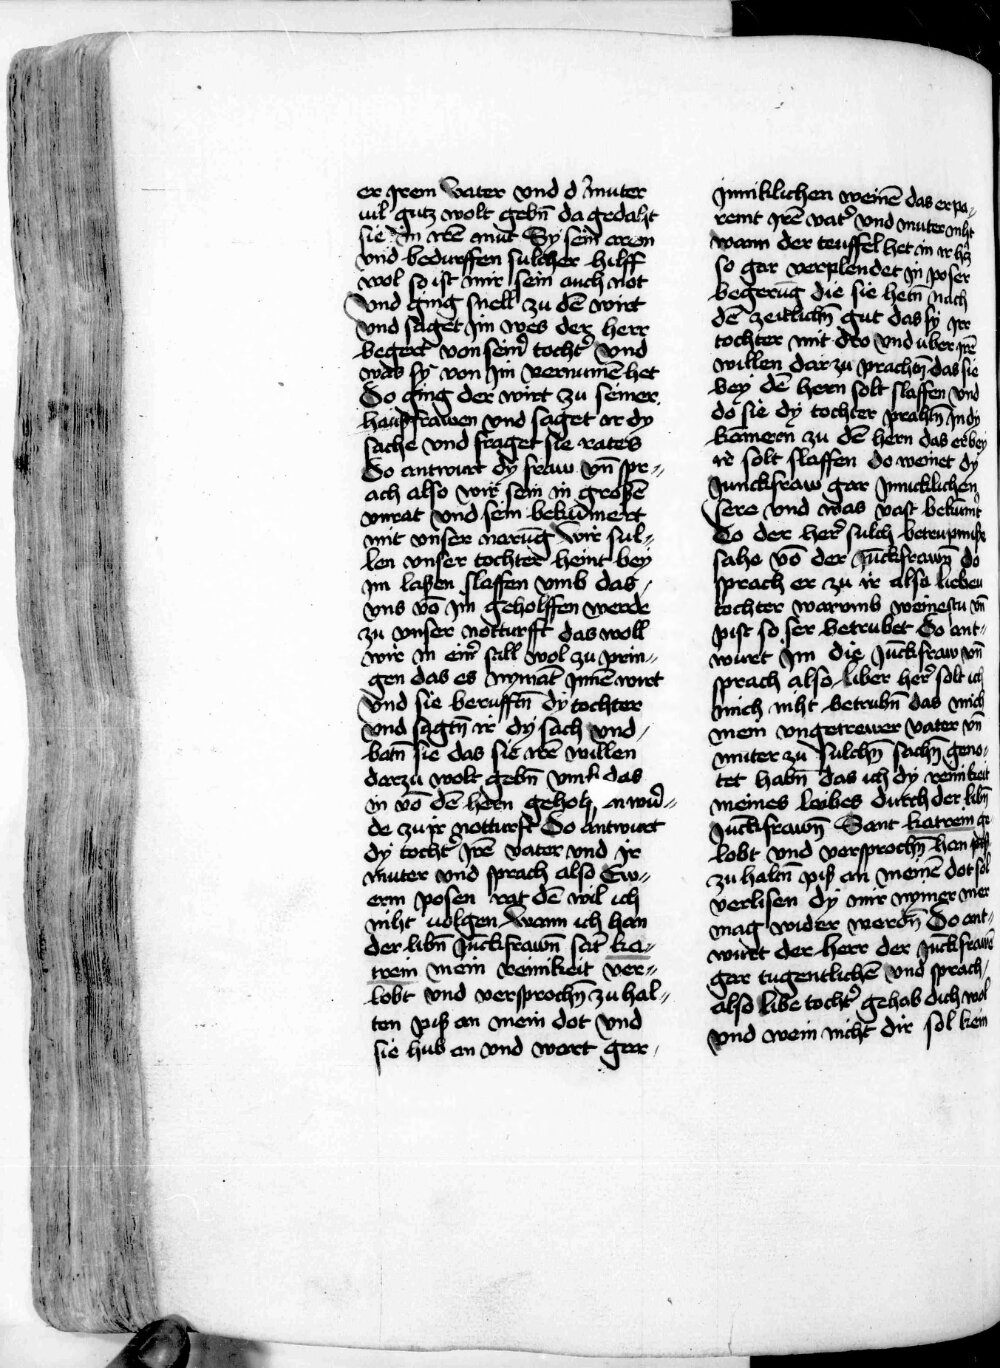 er jrem vater vnd d' muter
vil gutz wolt gebn̄ da gedaht
sie in irē mut Sy sein arem
vnd bedurffen sulcher hilff
wol so ist mir sein auch not
vnd ging snell zu dē wirt
vnd saget jm wes der herr
begert von seinr̄ tocht' vnd
was sy von jm vernumē het
Do ging der wirt zu seiner
haußfrawen vnd saget ir dy
sache vnd fraget sie rates
Do antwurt dy fraw vn̄ spr〃
ach also wir sein in großē
vnrat vnd sein bekūmert
mit vnser narūg wir sul〃
len vnser tochter heint bey
jm laßen slaffen vmb das
vns vō jm geholffen werde
zu vnser notturfft das woll
wir in einr̄ sall wol zu prin〃
gen das es nymāt jnnē wirt
vnd sie berufftn̄ dy tochter
vnd sagtn̄ ir dy sach vnd
batn̄ sie das sie irē willen
darzu wolt gebn̄ das
in vō dē hern geholf en wur̄〃
de zu jr notturft Do antwurt
dy tocht' jrē vater vnd jr
muter vnd sprach also Ew〃
erm posen rat dē wil ich
niht volgen wann ich han
der libn̄ juckfrawn̄ sāt ka〃
trein mein reinikeit ver〃
lobt vnd versprochn̄ zu hal〃
ten piß an mein dot vnd
sie hub an vnd wart gar
jnniklichen weinē das er pa〃
remt jrē vat' vnd muter niht
wann der teuffel het in ir hr̄tz
so gar verplendet in poser
begerūg die sie hetn̄ nach
dē zeitlichn̄ gut das sy jr
tochter mit dro vnd uber jrē
willen dar zu prachtn̄ das sie
bey dē hern solt slaffen vnd
do sie dy tochter prahtn̄ in dy
kāmern zu dē hern das er bey
ir solt slaffen do weinet dy
junckfraw gar jnnicklichen
sere vnd was vast bekumt
Do der her' sulch betrupnuße
sahe vō der juckfrawn̄ do
sprach er zu ir also lieben
tochter warumb weinestu vn̄
pist so ser betrubet Do ant〃
wurt jm die juckfraw vn̄
sprach also liber her' solt ich
mich niht betrubn̄ das mich
mein vngetrewer vater vn̄
muter zu sulchn̄ sachn̄ geno〃
tet habn̄ das ich dy reinikeit
meines leibes durch der libn̄
juckfrawn̄ Sant katrein ge
lobt vnd versprochn̄ han
zu haltn̄ piß an meinē dot sol
verlisen dy mir nymer mer
mag wider werdn̄ Do ant〃
wurt der herr der juckfrawē
gar tugentlichē vnd sprach
also libe tocht' gehab dich wol
vnd wein nicht dir sol kein